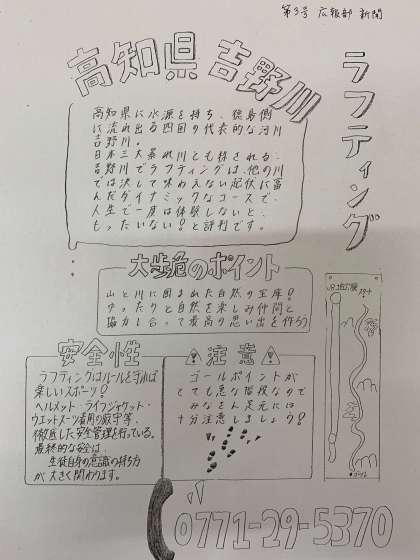 第3号 広報部 新聞
高知県 吉野川
ラフティング
高知県に水源を持ち、徳島側
に流れ出る四国の代表的な河川
吉野川。
日本三大暴れ川とも称される、
吉野川でラフティングは、他の川
では決して味わえない起伏に富
んだダイナミックなコースで、
人生で一度は体験しないと、
もったいない！と評判です。
大歩危のポイント
山と川に囲まれた自然の宝庫！
ゆったりと自然を楽しみ仲間と
協力し合って最高の思い出を作ろう
安全性
ラフティングはルールを守れば
楽しいスポーツ！
ヘルメット・ライフジャケット・
ウエットスーツ着用の厳守等、
徹底した安全管理を行っている。
最終的な安全は、
生徒自身の意識の持ち方
が大きく関わります。
注意
ゴールポイントが
とても急な階段なので
みなさん足元には
十分注意しましょう！
スタート
ゴール
0771-29-5370